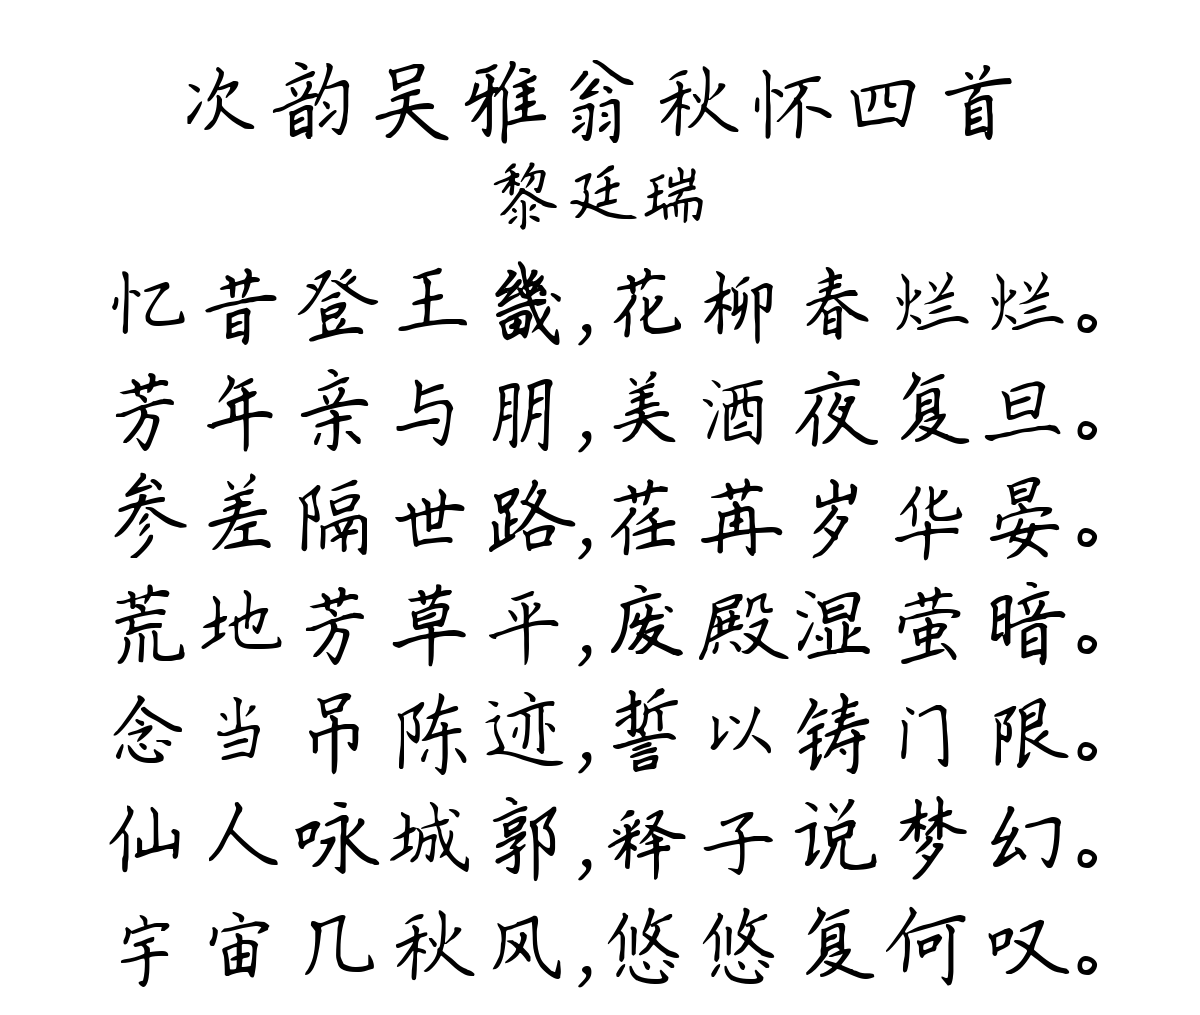 次韵吴雅翁秋怀四首
黎廷瑞
忆昔登王畿,花柳春烂烂。
芳年亲与朋,美酒夜复旦。
参差隔世路,荏苒岁华晏。
荒地芳草平,废殿湿萤暗。
念当吊陈迹,誓以铸门限。
仙人咏城郭,释子说梦幻。
宇宙几秋风,悠悠复何叹。